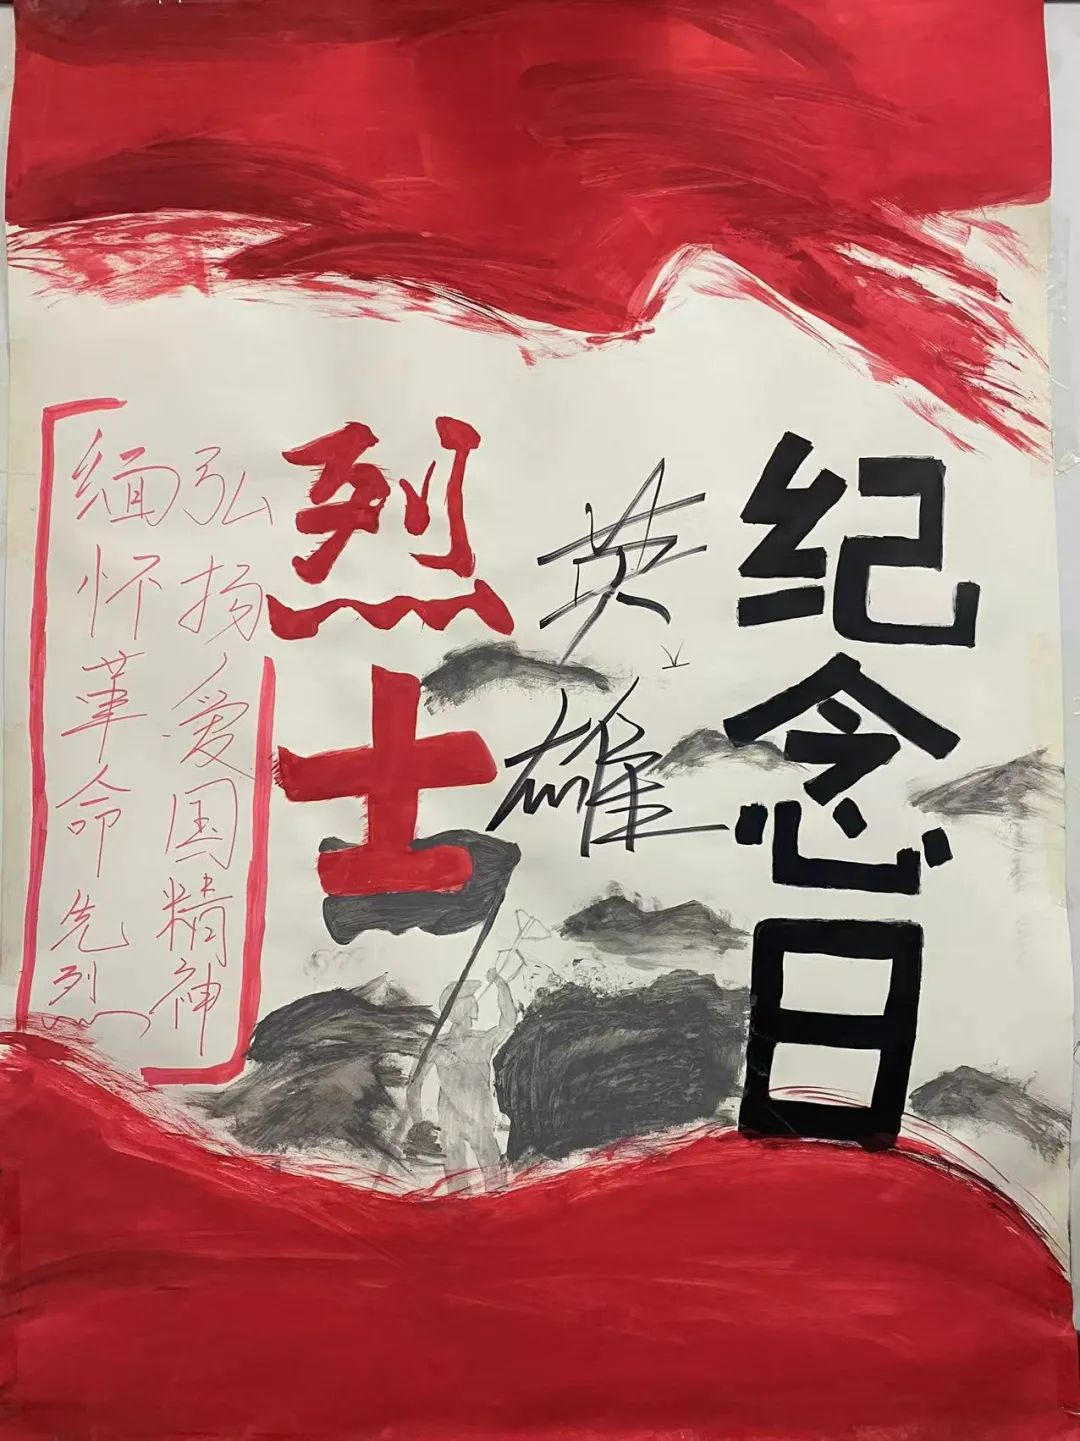 烈士
英雄
纪念日
弘扬爱国精神
缅怀革命先烈